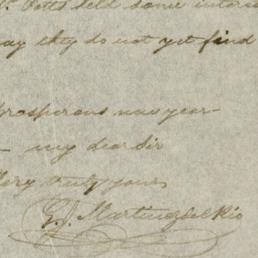 Potts held some
say they do not yet find
prosperous new year
my dear Sir
Very truly yours,
Martinez del Rio